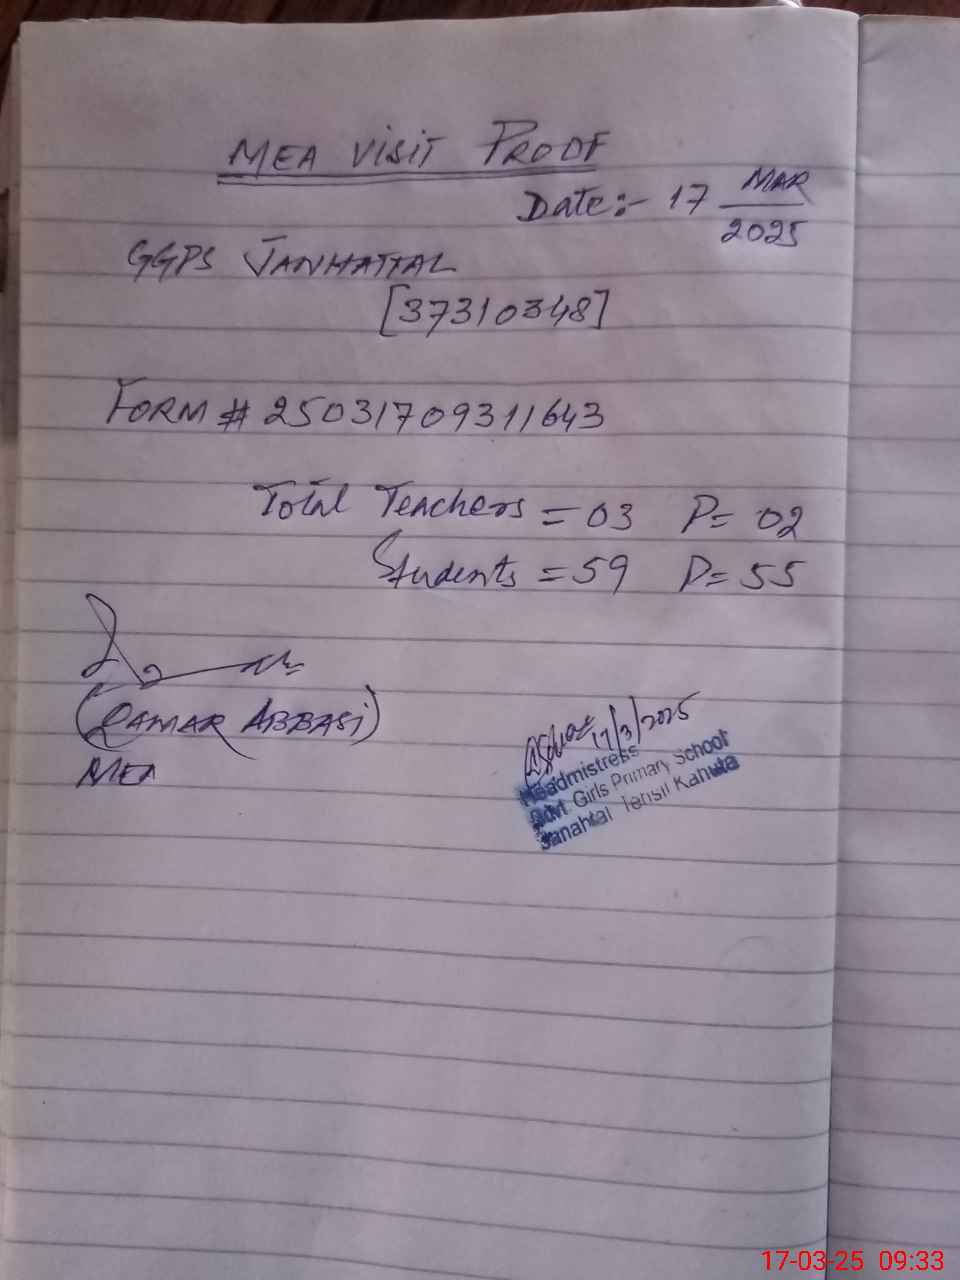 MEA VISIT PROOF
Date:- 17 MAR
2025
GGPS JANHATTAL
[37310348]
FORM # 25031709311643
Total Teachers = 03 P= 02
Students = 59 P= 55
(QAMAR ABBASI)
MEA
17/3/2025
Headmistress
Govt Girls Primary School
Janahtal Tehsil Kahuta
17-03-25 09:33